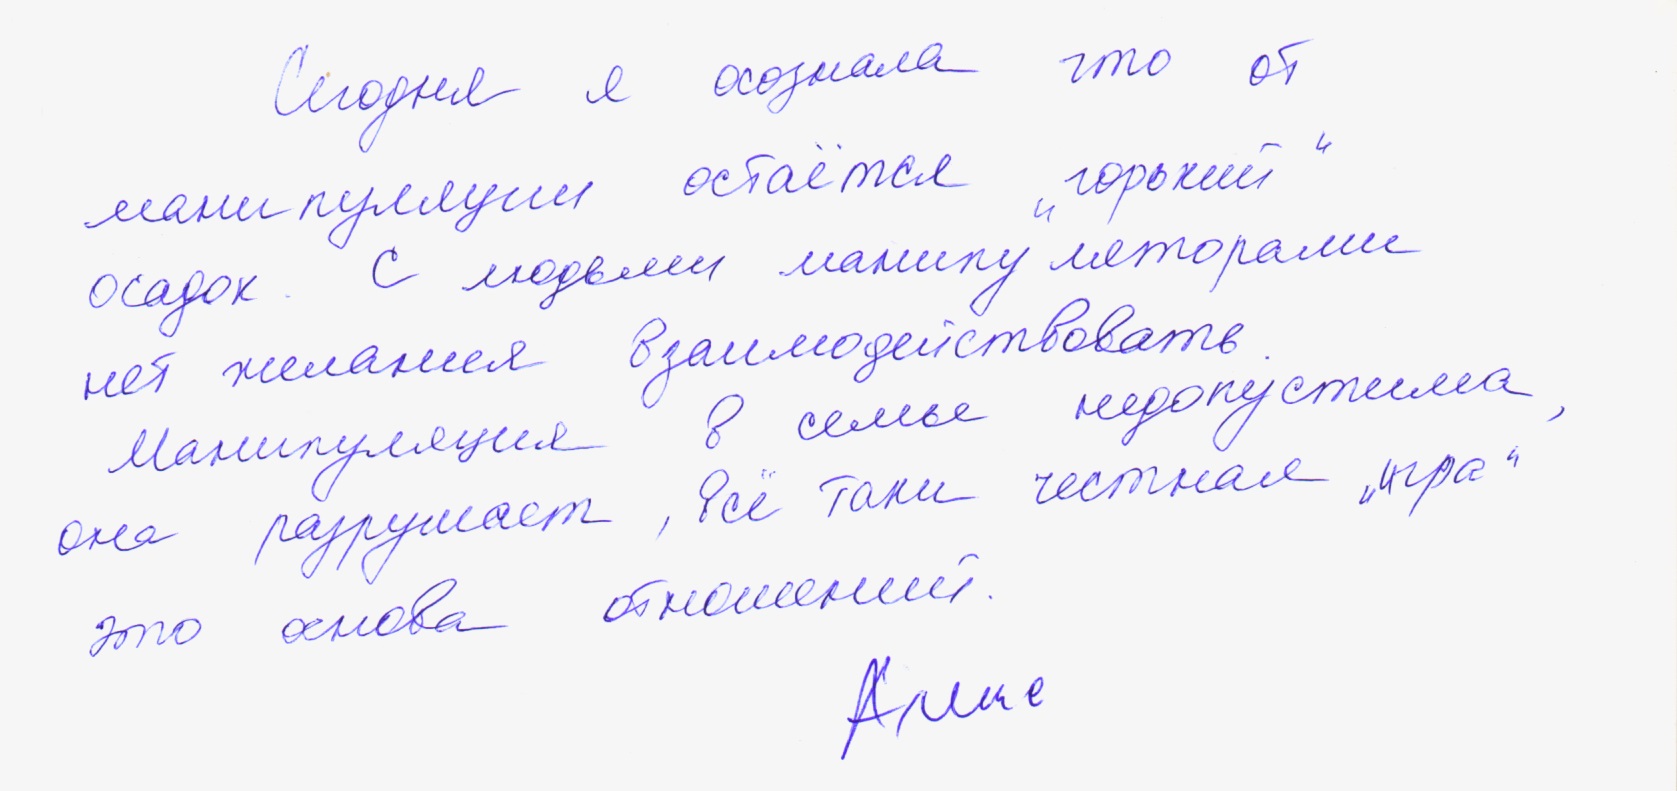 Сегодня я осознала что от
манипуляции остаётся „горький“
осадок. С людьми манипуляторами
нет желания взаимодействовать.
Манипуляция в семье недопустима,
она разрушает, всё таки честная „игра“
это основа отношений.